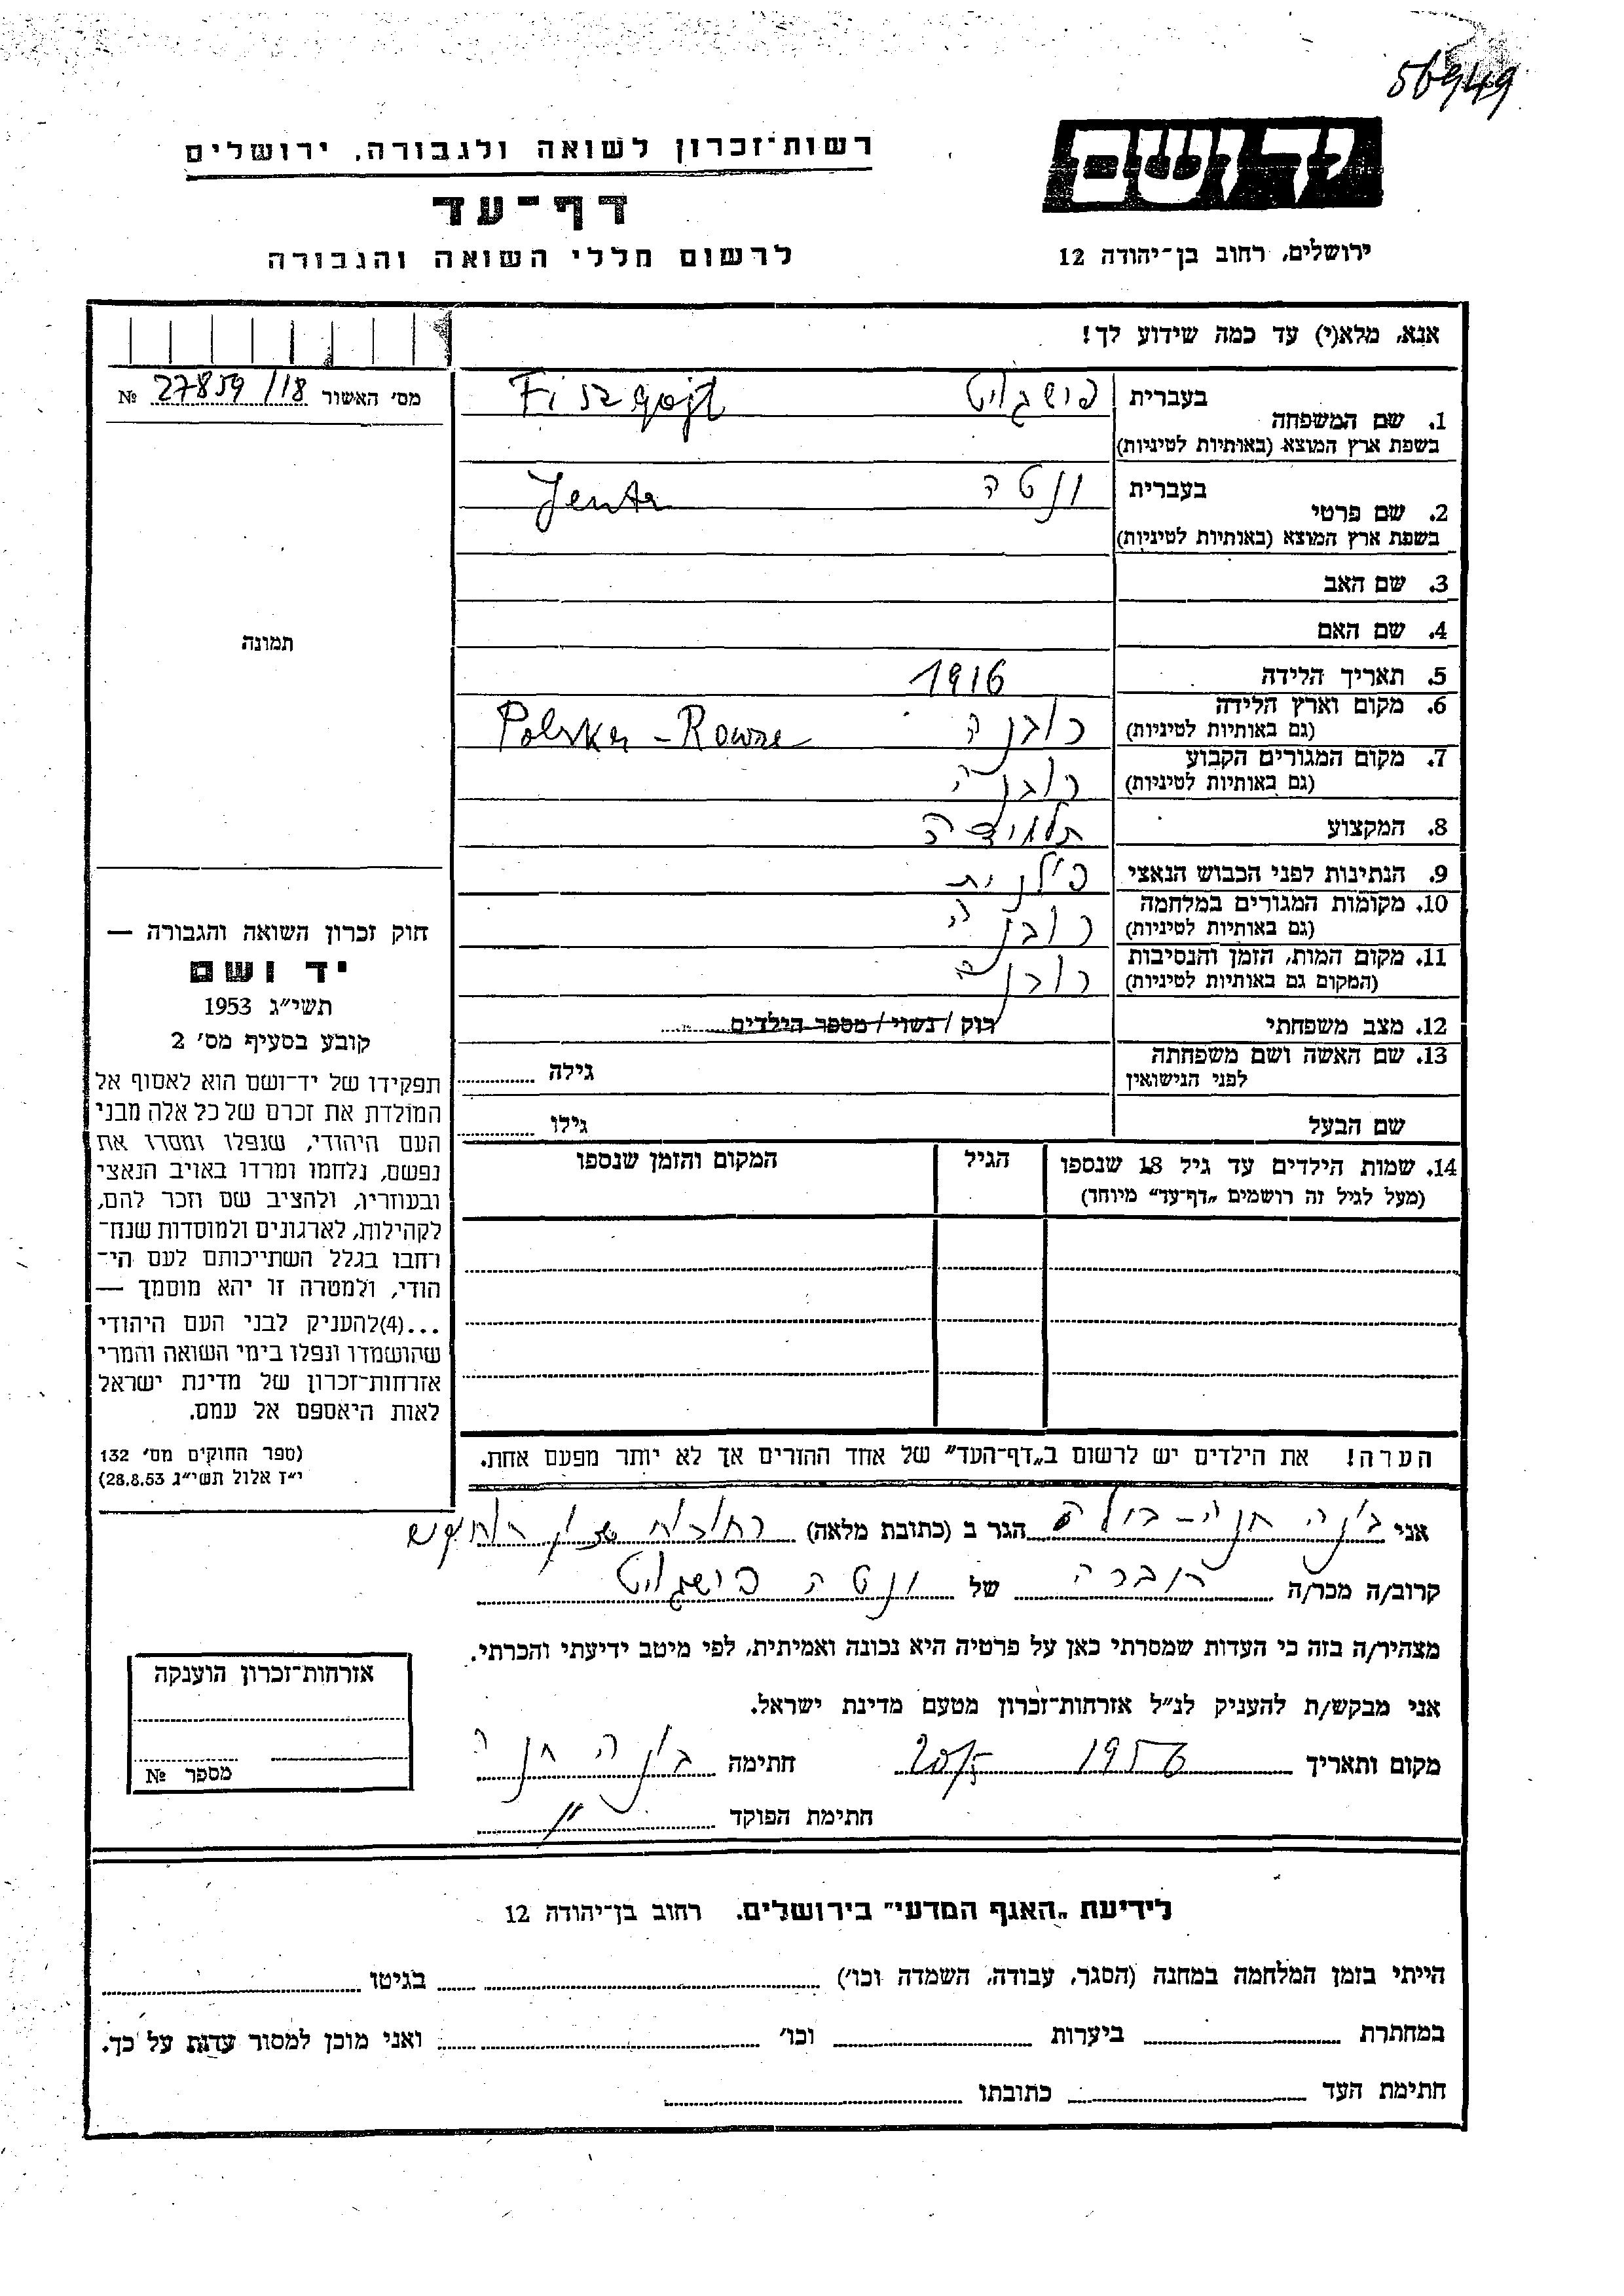 56949
יד ושם
רשות־זכרון לשואה ולגבורה, ירושלים
דף־עד
לרשום חללי השואה והגבורה
ירושלים, רחוב בן־יהודה 12
אנא, מלא(י) עד כמה שידוע לך!
מס׳ האשור 27859/18 №
תמונה
חוק זכרון השואה והגבורה —
יד ושם
תשי״ג 1953
קובע בסעיף מס׳ 2
תפקידו של יד־ושם הוא לאסוף אל
המולדת את זכרם של כל אלה מבני
העם היהודי, שנפלו ומסרו את
נפשם, נלחמו ומרדו באויב הנאצי
ובעוזריו, ולהציב שם וזכר להם,
לקהילות, לארגונים ולמוסדות שנח־
רחבו בגלל השתייכותם לעם הי־
הודי, ולמטרה זו יהא מוסמך —
...(4)להעניק לבני העם היהודי
שהושמדו ונפלו בימי השואה והמרי
אזרחות־זכרון של מדינת ישראל
לאות היאספם אל עמם.
(ספר החוקים מס׳ 132
י״ז אלול תשי״ג 28.8.53)
בעברית פישגויט Fiszgojt
1. שם המשפחה
בשפת ארץ המוצא (באותיות לטיניות)
בעברית ונטה Jenta
2. שם פרטי
בשפת ארץ המוצא (באותיות לטיניות)
3. שם האב
4. שם האם
5. תאריך הלידה 1916
6. מקום וארץ הלידה רובנה Polska - Rowne
(גם באותיות לטיניות)
7. מקום המגורים הקבוע רובנה
(גם באותיות לטיניות)
8. המקצוע תלמידה
9. הנתינות לפני הכבוש הנאצי פולנית
10. מקומות המגורים במלחמה רובנה
(גם באותיות לטיניות)
11. מקום המות, הזמן והנסיבות רובנה
(המקום גם באותיות לטיניות)
12. מצב משפחתי רוק / נשוי / מספר הילדים
13. שם האשה ושם משפחתה
לפני הנישואין גילה
שם הבעל גילו
14. שמות הילדים עד גיל 18 שנספו הגיל המקום והזמן שנספו
(מעל לגיל זה רושמים „דף־עד״ מיוחד)
הערה! את הילדים יש לרשום ב„דף־העד״ של אחד ההורים אך לא יותר מפעם אחת.
אני בינה חנה- הגר ב (כתובת מלאה) רחובות
קרוב/ה מכר/ה חברה של ונטה פישגויט
מצהיר/ה בזה כי העדות שמסרתי כאן על פרטיה היא נכונה ואמיתית, לפי מיטב ידיעתי והכרתי.
אני מבקש/ת להעניק לנ״ל אזרחות־זכרון מטעם מדינת ישראל.
מקום ותאריך 1956 20/5 חתימה בינה חנה
חתימת הפוקד
אזרחות־זכרון הוענקה
מספר №
לידיעת „האגף המדעי״ בירושלים. רחוב בן־יהודה 12
הייתי בזמן המלחמה במחנה (הסגר, עבודה, השמדה וכו׳) בגיטו
במחתרת ביערות וכו׳ ואני מוכן למסור עדות על כך.
חתימת העד כתובתו